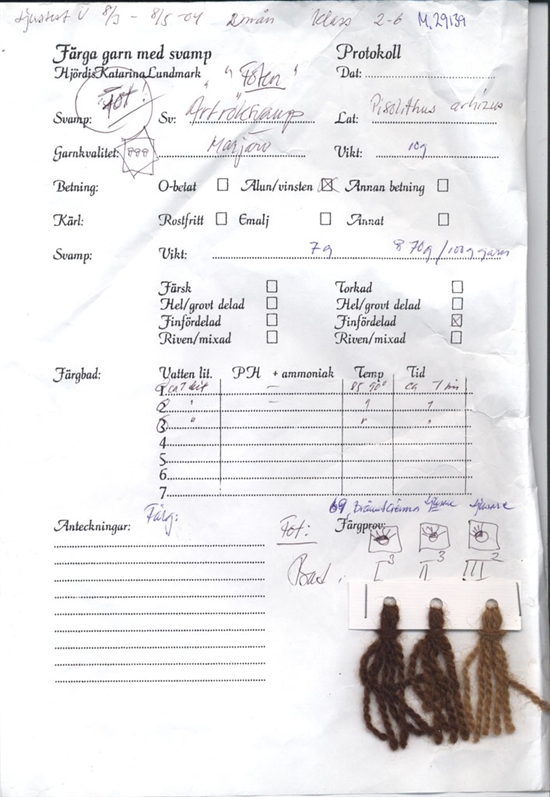 8/3 - 8/5 -04 2 mån Klass 2-6 M. 29139
Färga garn med svamp Protokoll
HjördisKatarinaLundmark "Foten" Dat:
Fot!
Svamp: Sv: Ärtröksvamp Lat: Pisolithus arhizus
Garnkvalitet: Marjaro Vikt: 10g
Betning: O-betat Alun/vinsten Annan betning
Kärl: Rostfritt Emalj Annat
Svamp: Vikt: 7g 70g/100g garn
Färsk Torkad
Hel/grovt delad Hel/grovt delad
Finfördelad Finfördelad
Riven/mixad Riven/mixad
Färgbad: Vatten lit. PH + ammoniak Temp Tid
1 - 85 90° ca 1
2 " - " "
3 " " "
4
5
6
7
69 ljusare ljusare
Anteckningar: Färg: Fot: Färgprov:
3 3 2
Bad: I II III